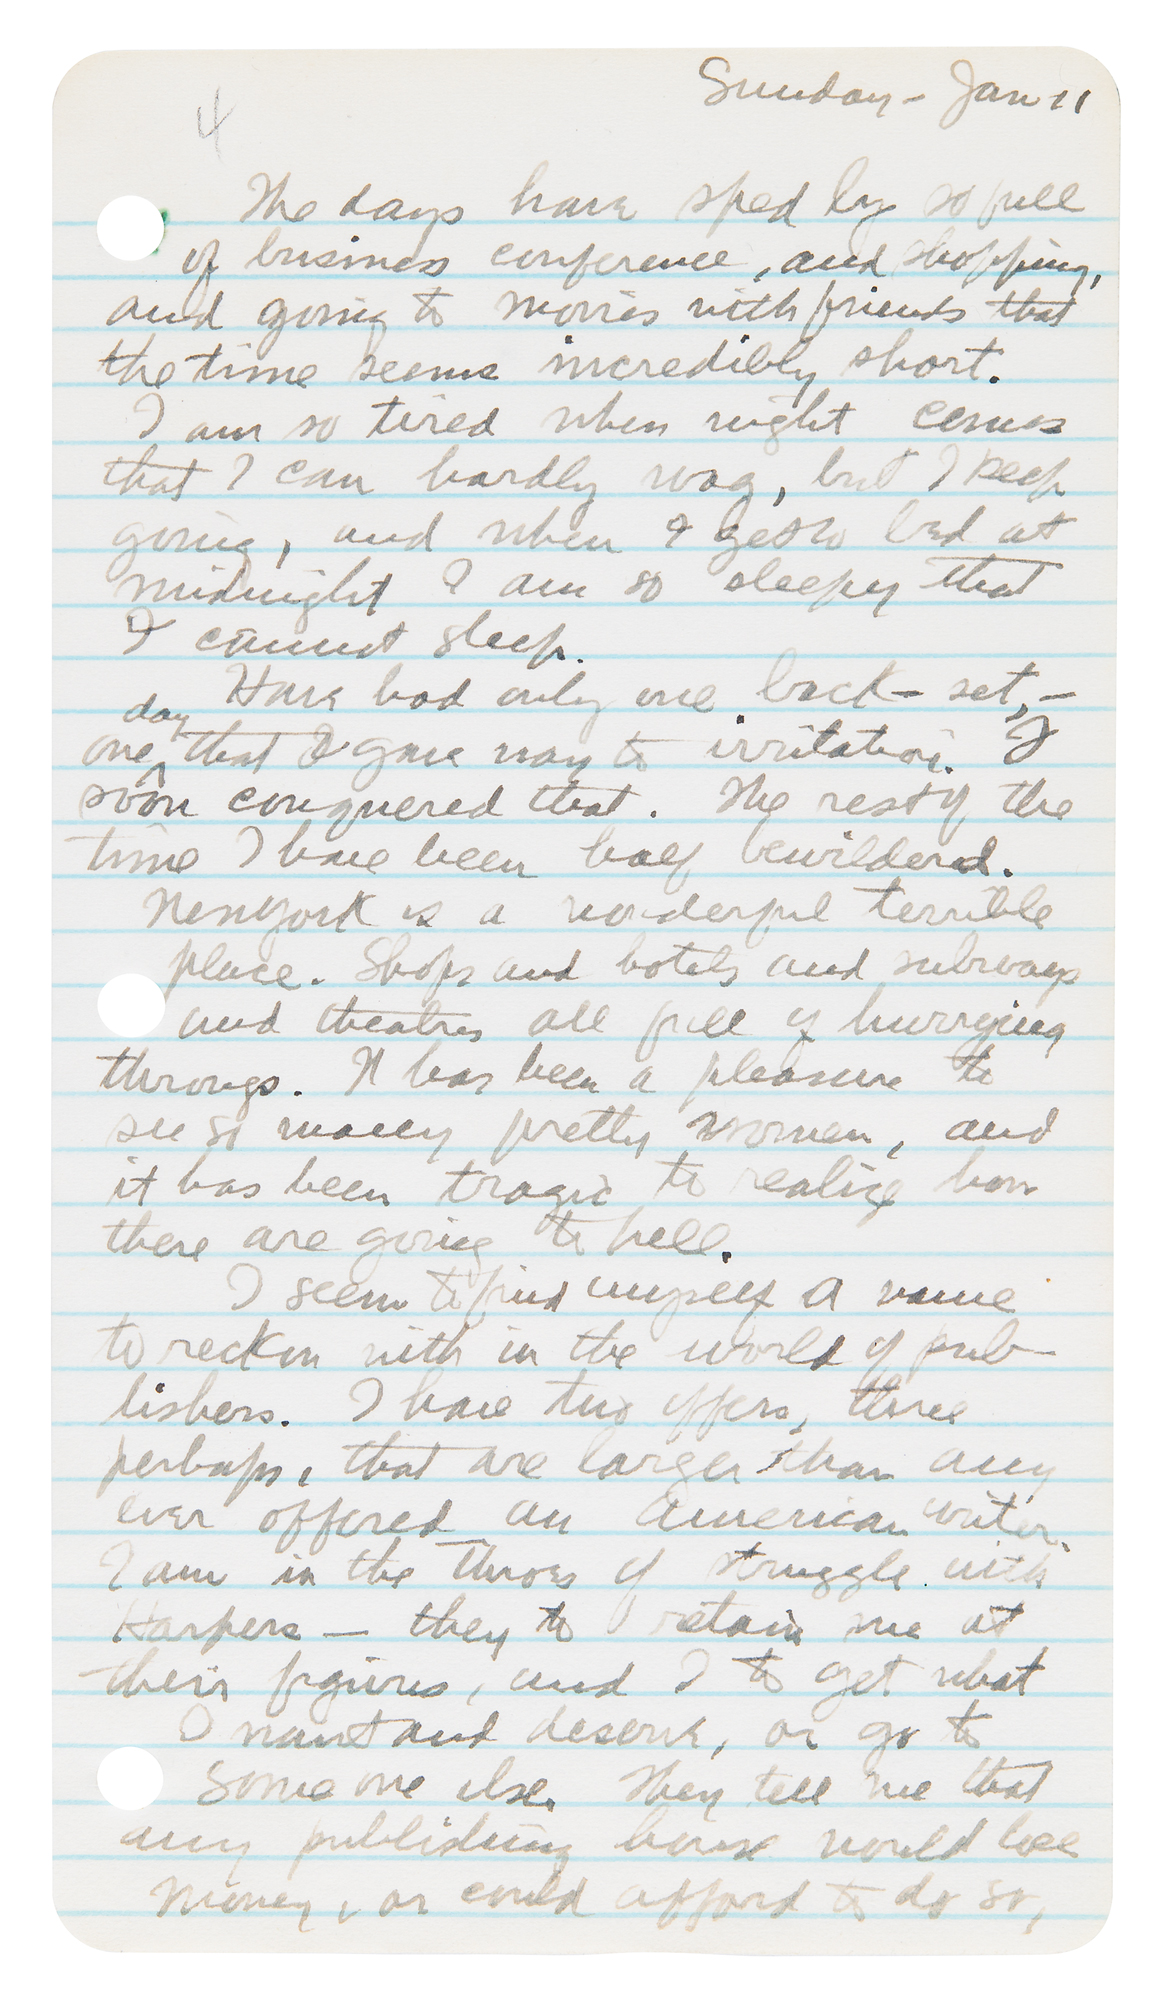 Sunday - Jan 11
4
The days have sped by so full
of business conference, and shopping,
and going to movies with friends that
the time seems incredibly short.
I am so tired when night comes
that I can hardly wag, but I keep
going, and when I get to bed at
midnight I am so sleepy that
I cannot sleep.
Have had only one back-set,-
day
one that I gave way to irritation. I
soon conquered that. The rest of the
time I have been half bewildered.
New York is a wonderful terrible
place. Shops and hotels and subways
and theatres all full of hurrying
throngs. It has been a pleasure to
see so many pretty women, and
it has been tragic to realize how
there are going to hell.
I seem to find myself a name
to reckon with in the world of pub-
lishers. I have two offers, three
perhaps, that are larger than any
ever offered an American writer.
I am in the throes of struggle with
Harpers — they to retain me at
their figures, and I to get what
I want and deserve, or go to
some one else. They tell me that
any publishing house would lose
money, or could afford to do so,